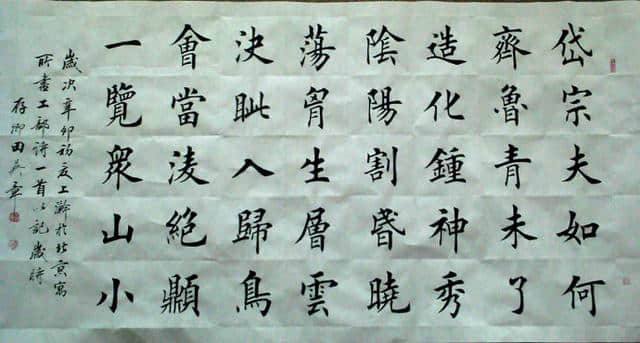 岱宗夫如何
齊魯青未了
造化鍾神秀
陰陽割昬曉
蕩胷生層雲
決眦入歸鳥
會當淩絕𩕢
一覽衆山小
歲次辛卯初夏上瀚於北京寓
所書工部詩一首以記歲時
存卿田英章